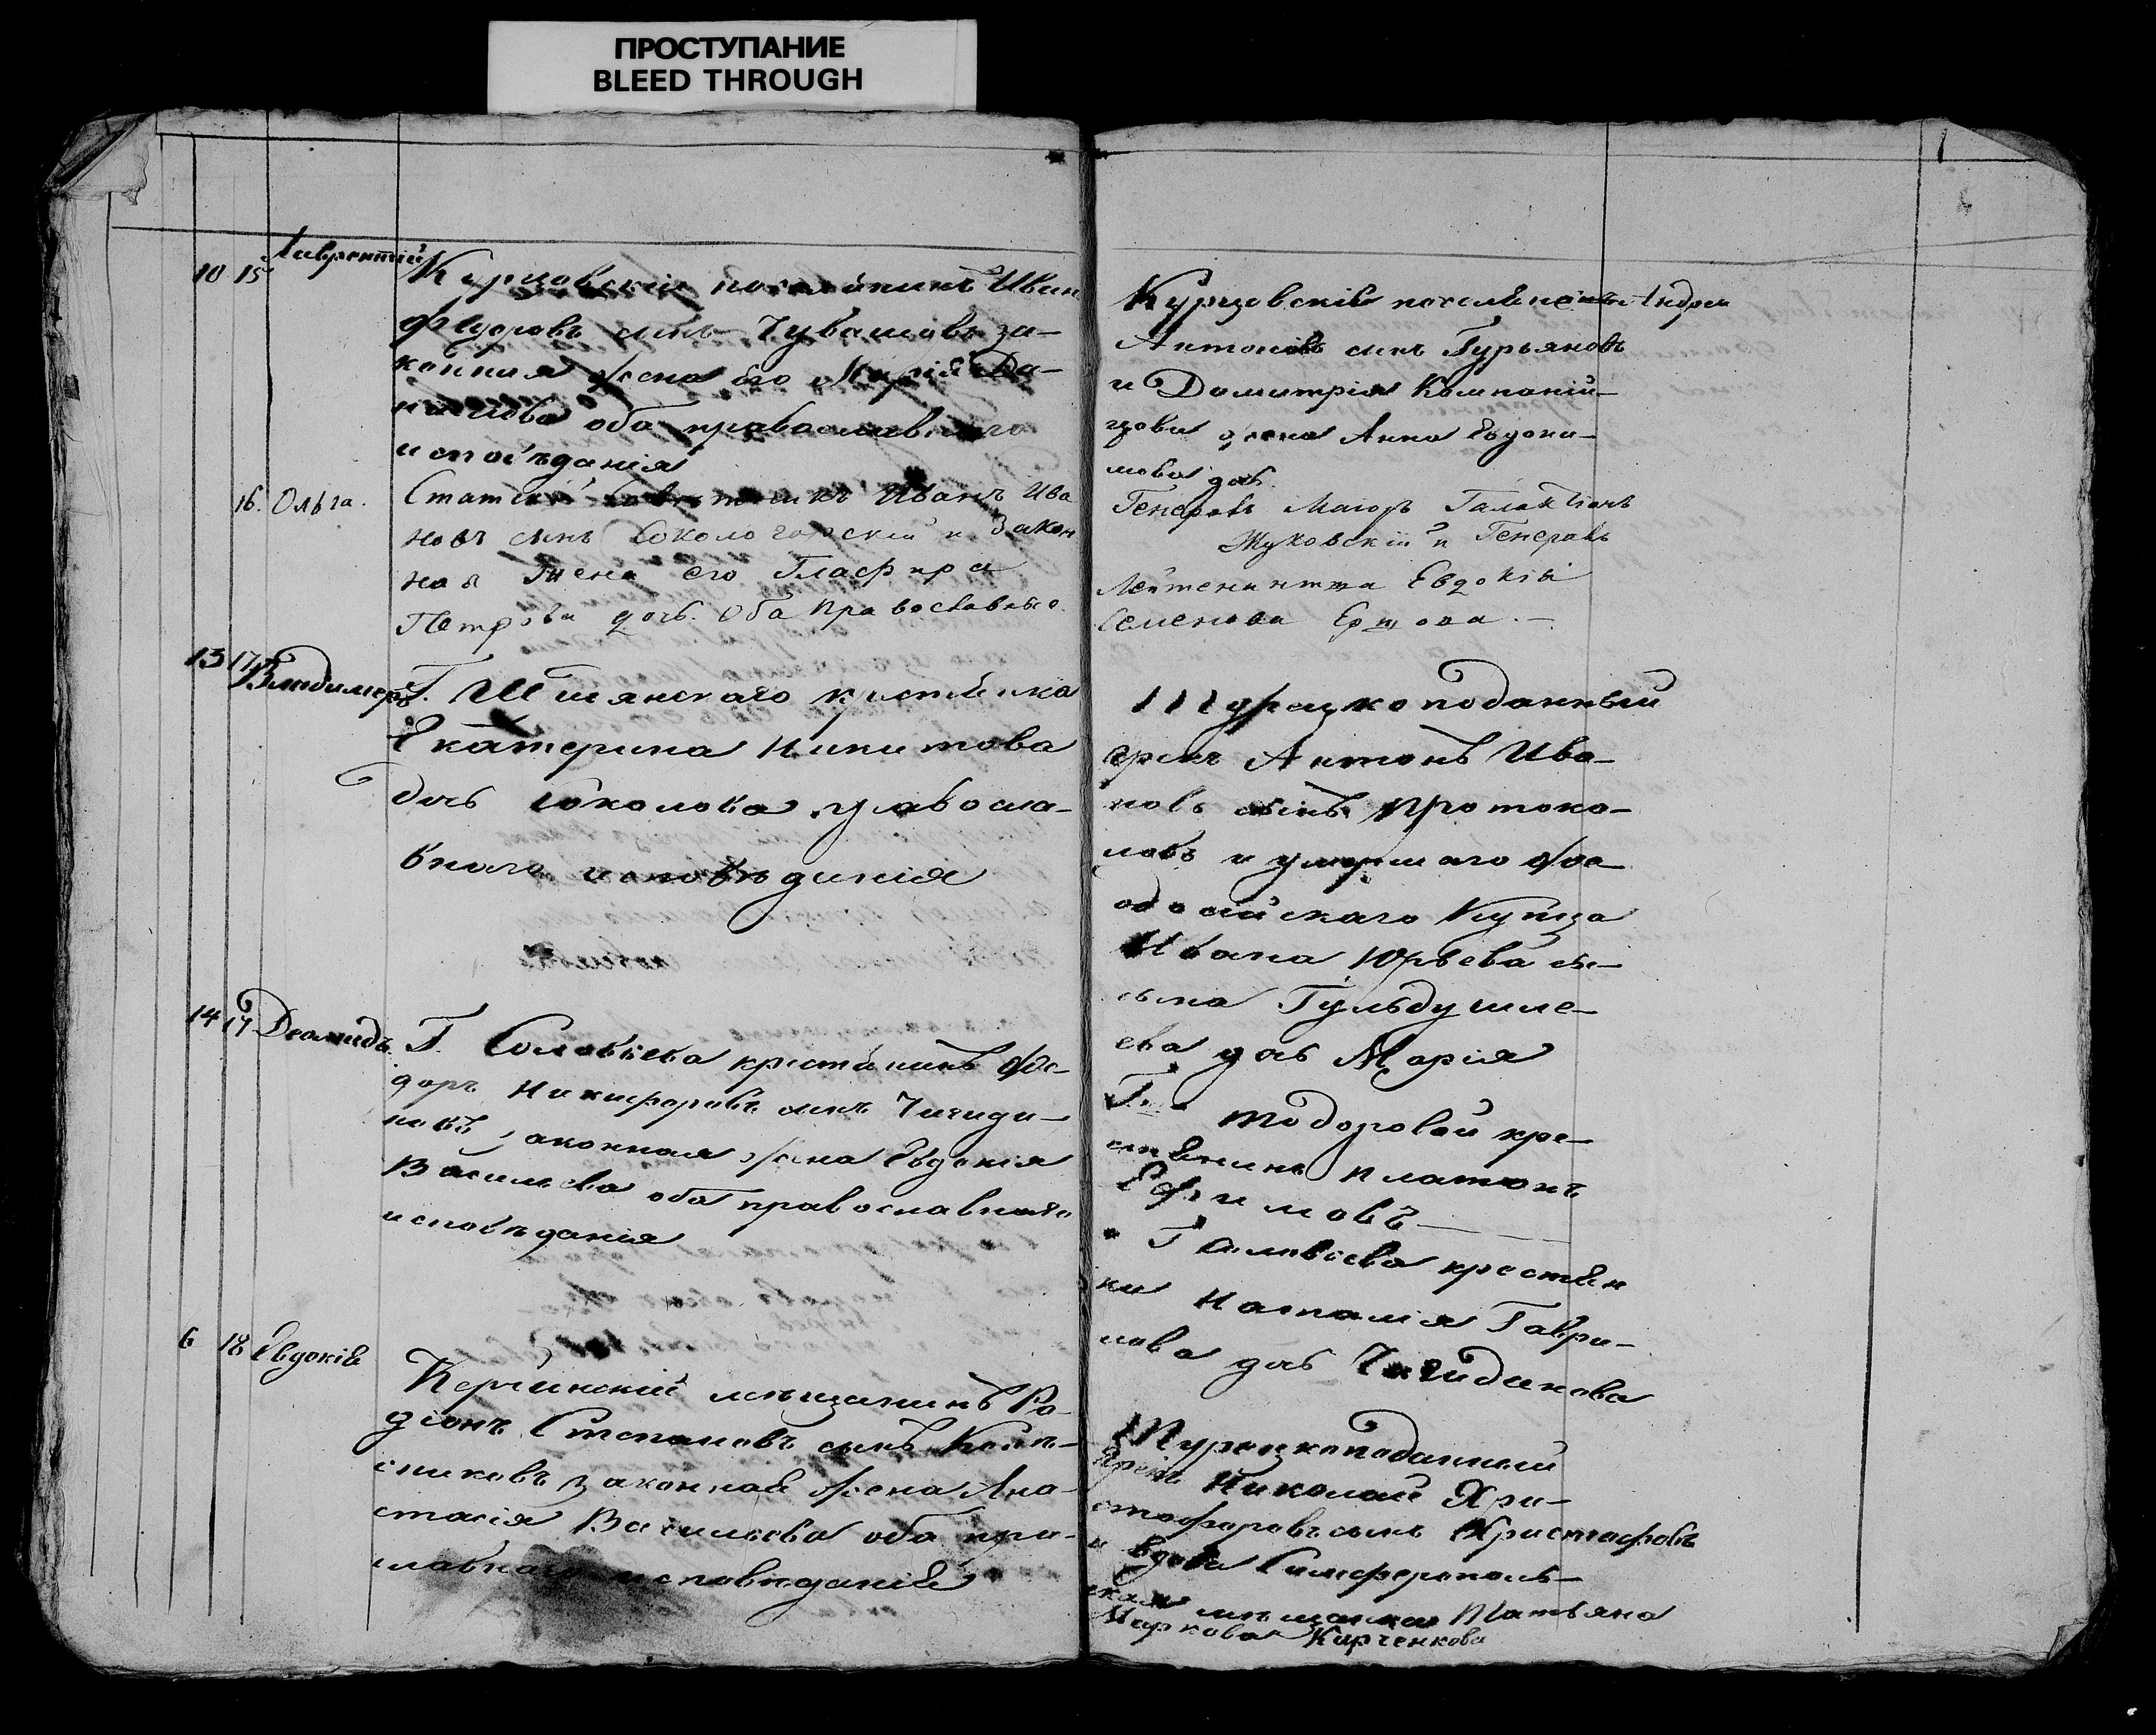 ПРОСТУПАНИЕ
BLEED THROUGH
10 15 Лаврентій
Курцовскій поселянинъ Иван
Федоровъ сынъ Чубашовъ за-
конная жена его Марія Да-
нилова оба православнаго
исповѣданія
16. Ольга.
Статскій Совѣтникъ Иванъ Ива
новъ сынъ Сокологорскій и Закон
ная жена его Гласфира
Петрова дочь. Оба православные.
13 17 Владимеръ
Г. Шишянскаго крестьянка
Екатерина Никитова
дочь Соколова православ-
внаго исповѣданія
14 17 Деомидъ
Г. Соловьева крестьянинъ Фе-
доръ Никифоровъ сынъ Чигида-
новъ, законная жена Евдокія
Васильева оба православнаго
исповѣданія
6 18 Евдокія
Керчинскій мѣщанинъ Ро-
діонъ Степановъ сынъ
законная жена Ана-
стасія Васильева оба пра-
славнаго исповѣданія
Курцовскій поселянинъ Андрей
Антоновъ сынъ Гурьяновъ
и Димитрія Компаній-
цова жена Анна Евдоки-
мова дочь.
Генералъ Маіоръ Галактіонъ
Жуковскій и Генералъ
Лейтенантша Евдокія
Семенова Ершова. —
Турецкоподанный
грекъ Антонъ Ива-
новъ сынъ Протоко-
ловъ и умершаго Фео-
одосійскаго Купца
Ивана Юрьева
сына Гульдушле-
ева дочь Марія
Г. Тодоровой кре-
стьянинъ Платонъ
Ефимовъ —
Г Соловьева крестьян
ки Наталія Гаври-
лова дочь Чигиданова
Турецкоподанный
грекъ Николай Хри-
стофоровъ сынъ Христофовъ
и вдова Симферополь-
ская мѣщанка Татьяна
Маркова Карченкова